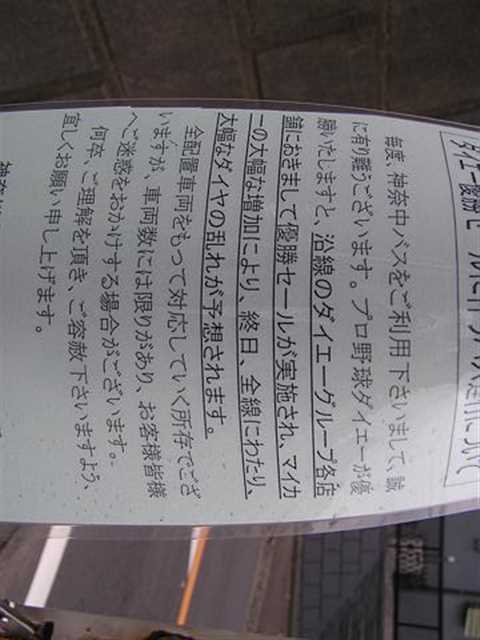 ダイエー優勝セールに伴うバス運行について
毎度、神奈中バスをご利用下さいまして、誠
に有難うございます。プロ野球ダイエーが優
勝いたしますと、沿線のダイエーグループ各店
舗におきまして優勝セールが実施され、マイカ
ーの大幅な増加により、終日、全線にわたり、
大幅なダイヤの乱れが予想されます。
全配置車両をもって対応していく所存でござ
いますが、車両数には限りがあり、お客様皆様
へご迷惑をおかけする場合がございます。
何卒、ご理解を頂き、ご容赦下さいますよう、
宜しくお願い申し上げます。